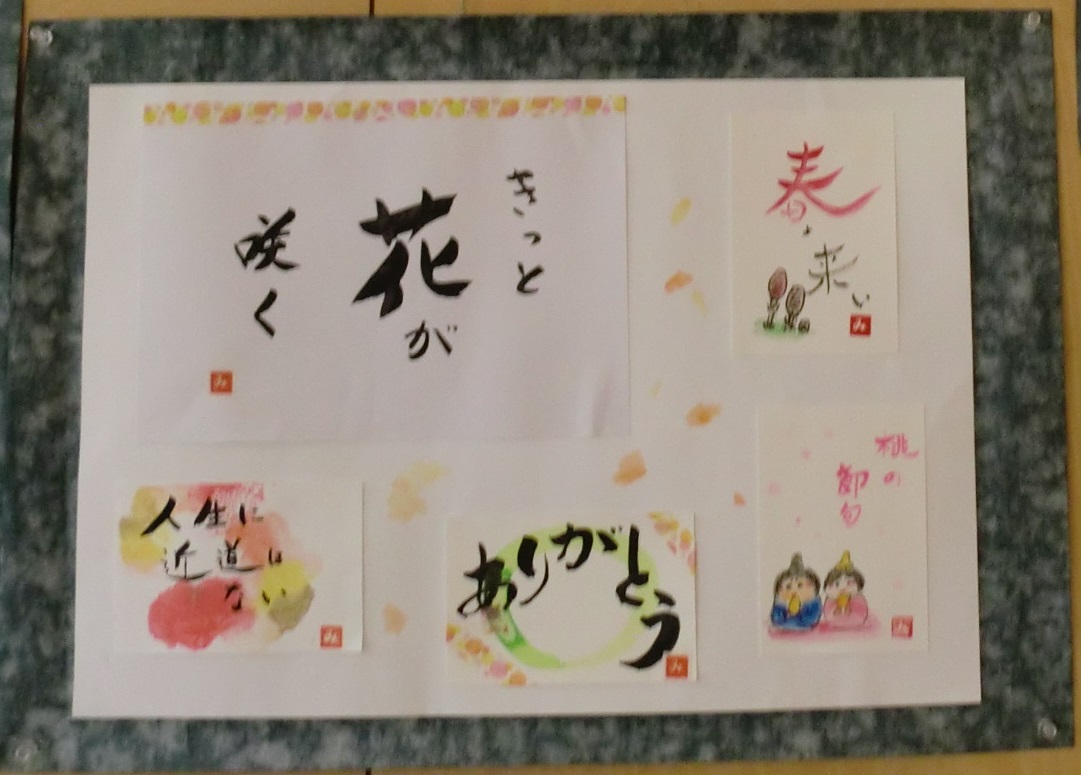 きっと
花が
咲く
み
春よ
来い
み
人生に
近道は
ない
み
ありがとう
み
桃の
節句
み